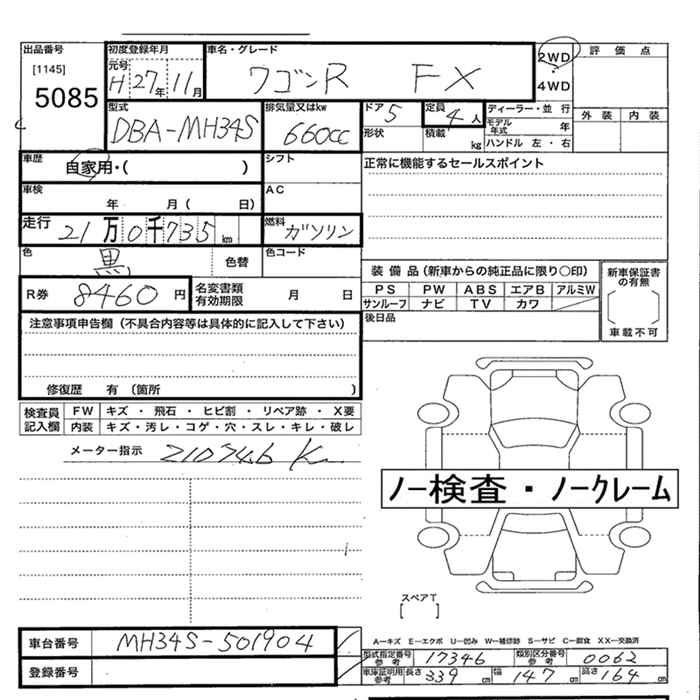 出品番号
[1145]
5085
初度登録年月
元号
H 27年 11月
車名・グレード
ワゴンR FX
2WD
・
4WD
評価点
外装 内装
型式
DBA-MH34S
排気量又はkw
660cc
ドア 5
形状
定員 4人
積載 kg
ディーラー・並行
モデル年式 年
ハンドル 左・右
車歴
自家用・( )
シフト
正常に機能するセールスポイント
車検
年 月( 日)
AC
走行
21万0千735km
燃料
ガソリン
色
黒
色替
色コード
R券 8460円
名変書類有効期限 月 日
装備品(新車からの純正品に限り○印)
PS PW ABS エアB アルミW
サンルーフ ナビ TV カワ
新車保証書の有無
[ ]
車載不可
後日品
注意事項申告欄(不具合内容等は具体的に記入して下さい)
修復歴 有 (箇所 )
検査員記入欄
FW キズ・飛石・ヒビ割・リペア跡・X要
内装 キズ・汚レ・コゲ・穴・スレ・キレ・破レ
メーター指示 210746 K
ノー検査・ノークレーム
スペアT
[ ]
車台番号 MH34S-501904
登録番号
A-キズ E-エクボ U-凹み W-補修跡 S-サビ C-腐食 XX-交換済
型式指定番号参考 17346 類別区分番号参考 0062
車庫証明用参考 長さ 339cm 幅 147cm 高さ 164cm